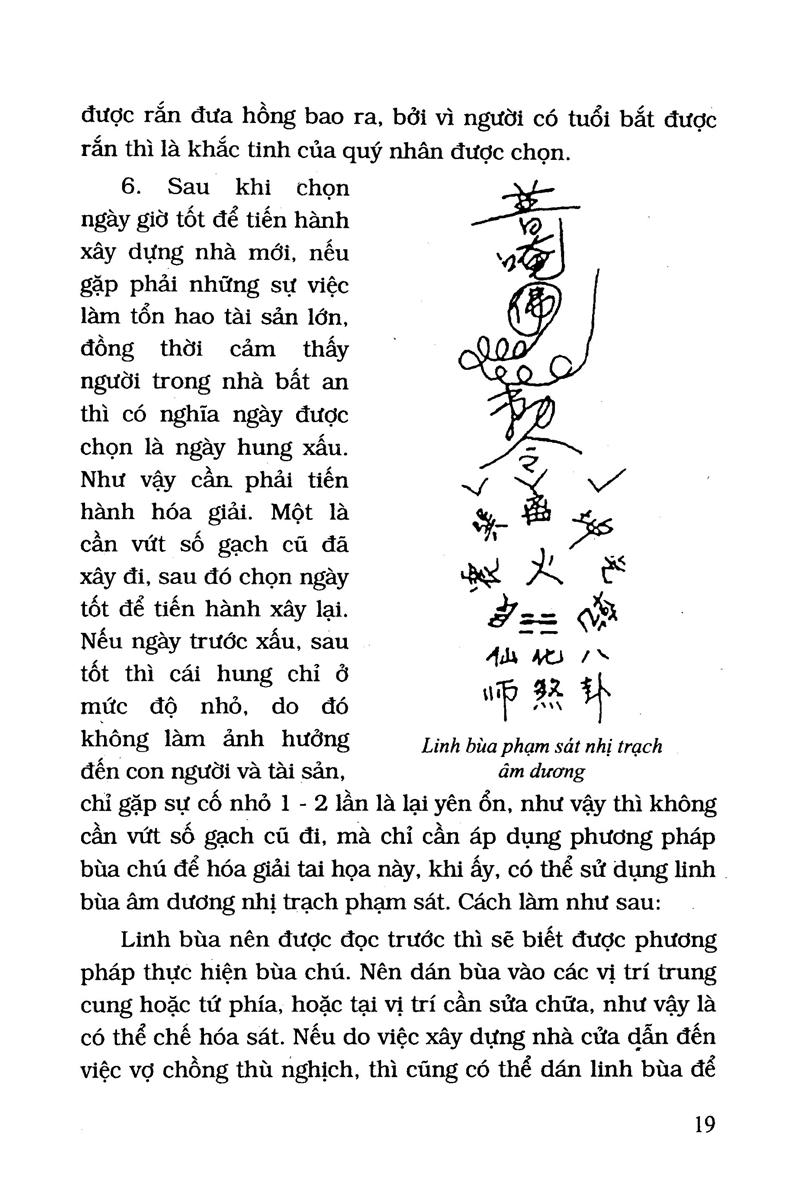 được rắn đưa hồng bao ra, bởi vì người có tuổi bắt được
rắn thì là khắc tinh của quý nhân được chọn.
6. Sau khi chọn
ngày giờ tốt để tiến hành
xây dựng nhà mới, nếu
gặp phải những sự việc
làm tổn hao tài sản lớn,
đồng thời cảm thấy
người trong nhà bất an
thì có nghĩa ngày được
chọn là ngày hung xấu.
Như vậy cần phải tiến
hành hóa giải. Một là
cần vứt số gạch cũ đã
xây đi, sau đó chọn ngày
tốt để tiến hành xây lại.
Nếu ngày trước xấu, sau
tốt thì cái hung chỉ ở
mức độ nhỏ, do đó
không làm ảnh hưởng
đến con người và tài sản,
唵
佛
令
火
仙 化 八
师 煞 卦
Linh bùa phạm sát nhị trạch
âm dương
chỉ gặp sự cố nhỏ 1 - 2 lần là lại yên ổn, như vậy thì không
cần vứt số gạch cũ đi, mà chỉ cần áp dụng phương pháp
bùa chú để hóa giải tai họa này, khi ấy, có thể sử dụng linh
bùa âm dương nhị trạch phạm sát. Cách làm như sau:
Linh bùa nên được đọc trước thì sẽ biết được phương
pháp thực hiện bùa chú. Nên dán bùa vào các vị trí trung
cung hoặc tứ phía, hoặc tại vị trí cần sửa chữa, như vậy là
có thể chế hóa sát. Nếu do việc xây dựng nhà cửa dẫn đến
việc vợ chồng thù nghịch, thì cũng có thể dán linh bùa để
19